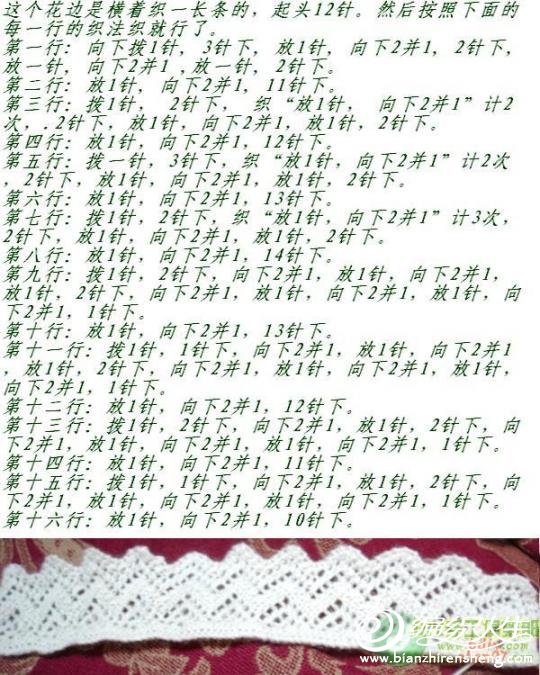 这个花边是横着织一长条的，起头12针。然后按照下面的
每一行的织法织就行了。
第一行：向下拨1针，3针下，放1针，向下2并1，2针下，
放一针，向下2并1，放一针，2针下。
第二行：放1针，向下2并1，11针下。
第三行：拨1针，2针下，织“放1针，向下2并1”计2
次，.2针下，放1针，向下2并1，放1针，2针下。
第四行：放1针，向下2并1，12针下。
第五行：拨一针，3针下，织“放1针，向下2并1”计2次
，2针下，放1针，向下2并1，放1针，2针下。
第六行：放1针，向下2并1，13针下。
第七行：拨1针，2针下，织“放1针，向下2并1”计3次，
2针下，放1针，向下2并1，放1针，2针下。
第八行：放1针，向下2并1，14针下。
第九行：拨1针，2针下，向下2并1，放1针，向下2并1，
放1针，2针下，向下2并1，放1针，向下2并1，放1针，向
下2并1，1针下。
第十行：放1针，向下2并1，13针下。
第十一行：拨1针，1针下，向下2并1，放1针，向下2并1
，放1针，2针下，向下2并1，放1针，向下2并1，放1针，
向下2并1，1针下。
第十二行：放1针，向下2并1，12针下。
第十三行：拨1针，2针下，向下2并1，放1针，2针下，向
下2并1，放1针，向下2并1，放1针，向下2并1，1针下。
第十四行：放1针，向下2并1，11针下。
第十五行：拨1针，1针下，向下2并1，放1针，2针下，向
下2并1，放1针，向下2并1，放1针，向下2并1，1针下。
第十六行：放1针，向下2并1，10针下。
编织人生
www.bianzhirensheng.com